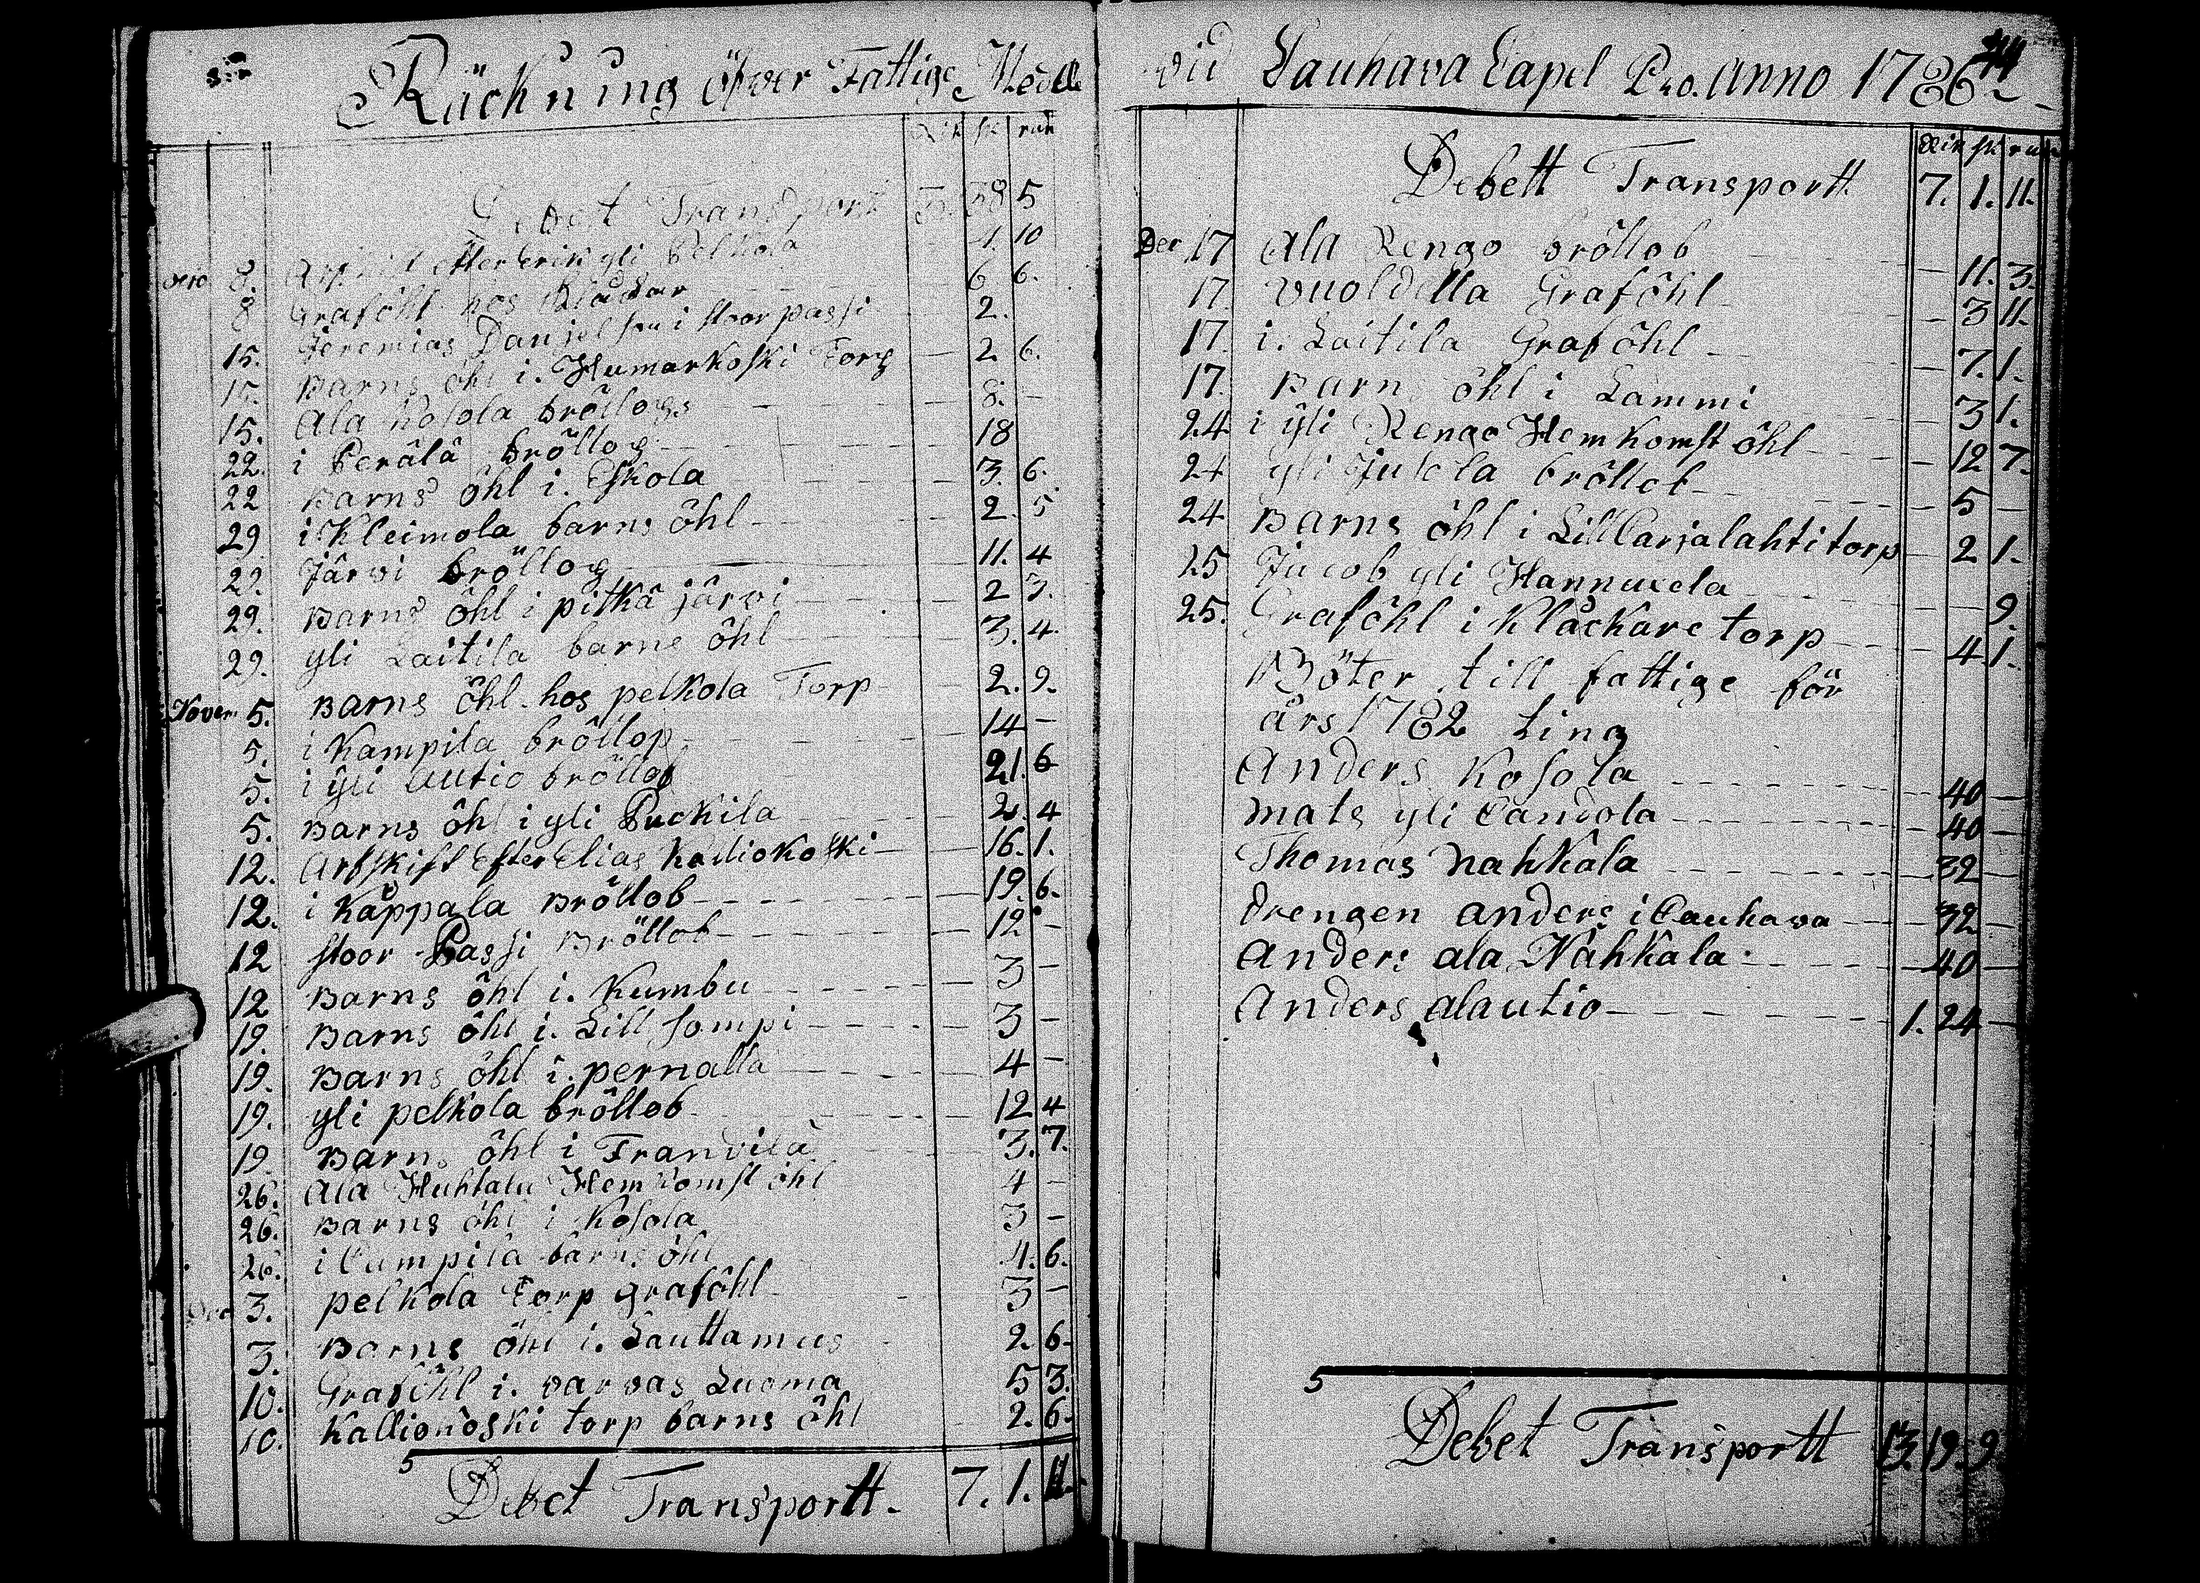 Räckning öfver Fattige Medell
Rdr sk rund
Debet Transport 3. 38 5
Octo 8. Arfskift efter Erik yli Pelkola 4. 10
8 Graföhl hos Klåckar 6 6.
15. Jeremias Danjelson i stoor passi 2.
15. Barns öhl i. Humarkoski Torp 2. 6.
15. Ala Kosola bröllops 8. –
22. i Perälä bröllop 18
22 Barns öhl i. Eskola 3. 6.
29 i Kleimola barns öhl 2. 5
29. Järvi bröllop 11. 4
29. Barns öhl i pitkä järvi 2 3.
29. yli Laitila barns öhl 3. 4.
Novem 5. Barns öhl hos pelkola Torp 2. 9.
5. i Kampila bröllop 14 –
5. i yli autio bröllob 21. 6
5. Barns öhl i yli Puckila 2. 4
12. Arfskift Efter Elias Kalliokoski 16. 1.
12. i Kåppala Bröllob 19. 6.
12 stoor Passi Bröllob 12 –
12 Barns öhl i. Kumbu 3 –
19. Barns öhl i. Lill sompi 3 –
19. Barns öhl i. pernalla 4 –
19. yli pelkola bröllob 12 4
19 Barns öhl i Frandila 3. 7.
26. Ala Huhtala Hemkomst öhl 4 –
26. Barns öhl i Kosola 3 –
26. i Campila barns öhl 4. 6.
Dec 3. pelkola Torp graföhl 3 –
3. Barns öhl i. Lauttamus 2 6.
10. Graföhl i. varvas Luoma 5 3.
10. Kallionoski torp barns öhl 2. 6.
5
Debet Transportt. 7. 1. 11.
44
vid Lauhava Capel Pro. Anno 1786
Rdr sk rund
Debett Transportt 7. 1. 11.
Der 17 Ala Rengo bröllob 11. 3.
17. vuoldilla Graföhl 3 11.
17. i. Laitila Graföhl 7. 1.
17. Barns öhl i Lammi 3 1.
24 i yli Rengo Hemkomst öhl 12 7.
24 yli Jusola bröllob 5 –
24 Barns öhl i Lill Carjalahti torp 2 1.
25 Jacob yli Hannuxela 9.
25. Graföhl i Klåckare torp 4 1.
Böter till fattige för
års 1782 ting
Anders Kosola 40 –
mats yli Candola 40 –
Thomas Nahkala 32 –
drengen anders i Cauhava 32 –
Anders ala Nahkala 40 –
Anders alautio 1. 24 –
5
Debet Transportt 13. 19. 9